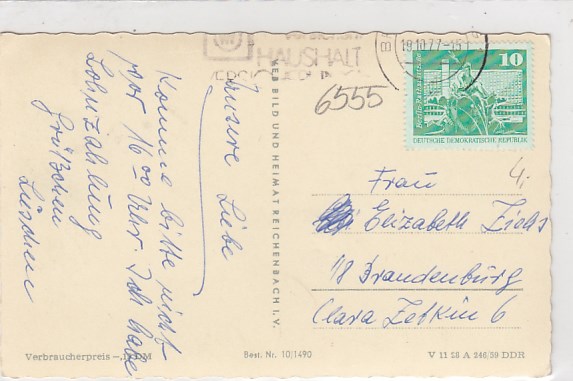 HAUSHALT
19.10.77
6555
10
DEUTSCHE DEMOKRATISCHE REPUBLIK
Unsere Liebe
Komme bitte nicht
vor 16 00 Uhr. Ich habe
Lohnzahlung
Grüßchen
Lieschen
VEB BILD UND HEIMAT REICHENBACH I. V.
4.
Frau
Elizabeth
18 Brandenburg
Clara Zetkin 6
Verbraucherpreis DM
Best. Nr. 10/1490
V 11 28 A 246/59 DDR